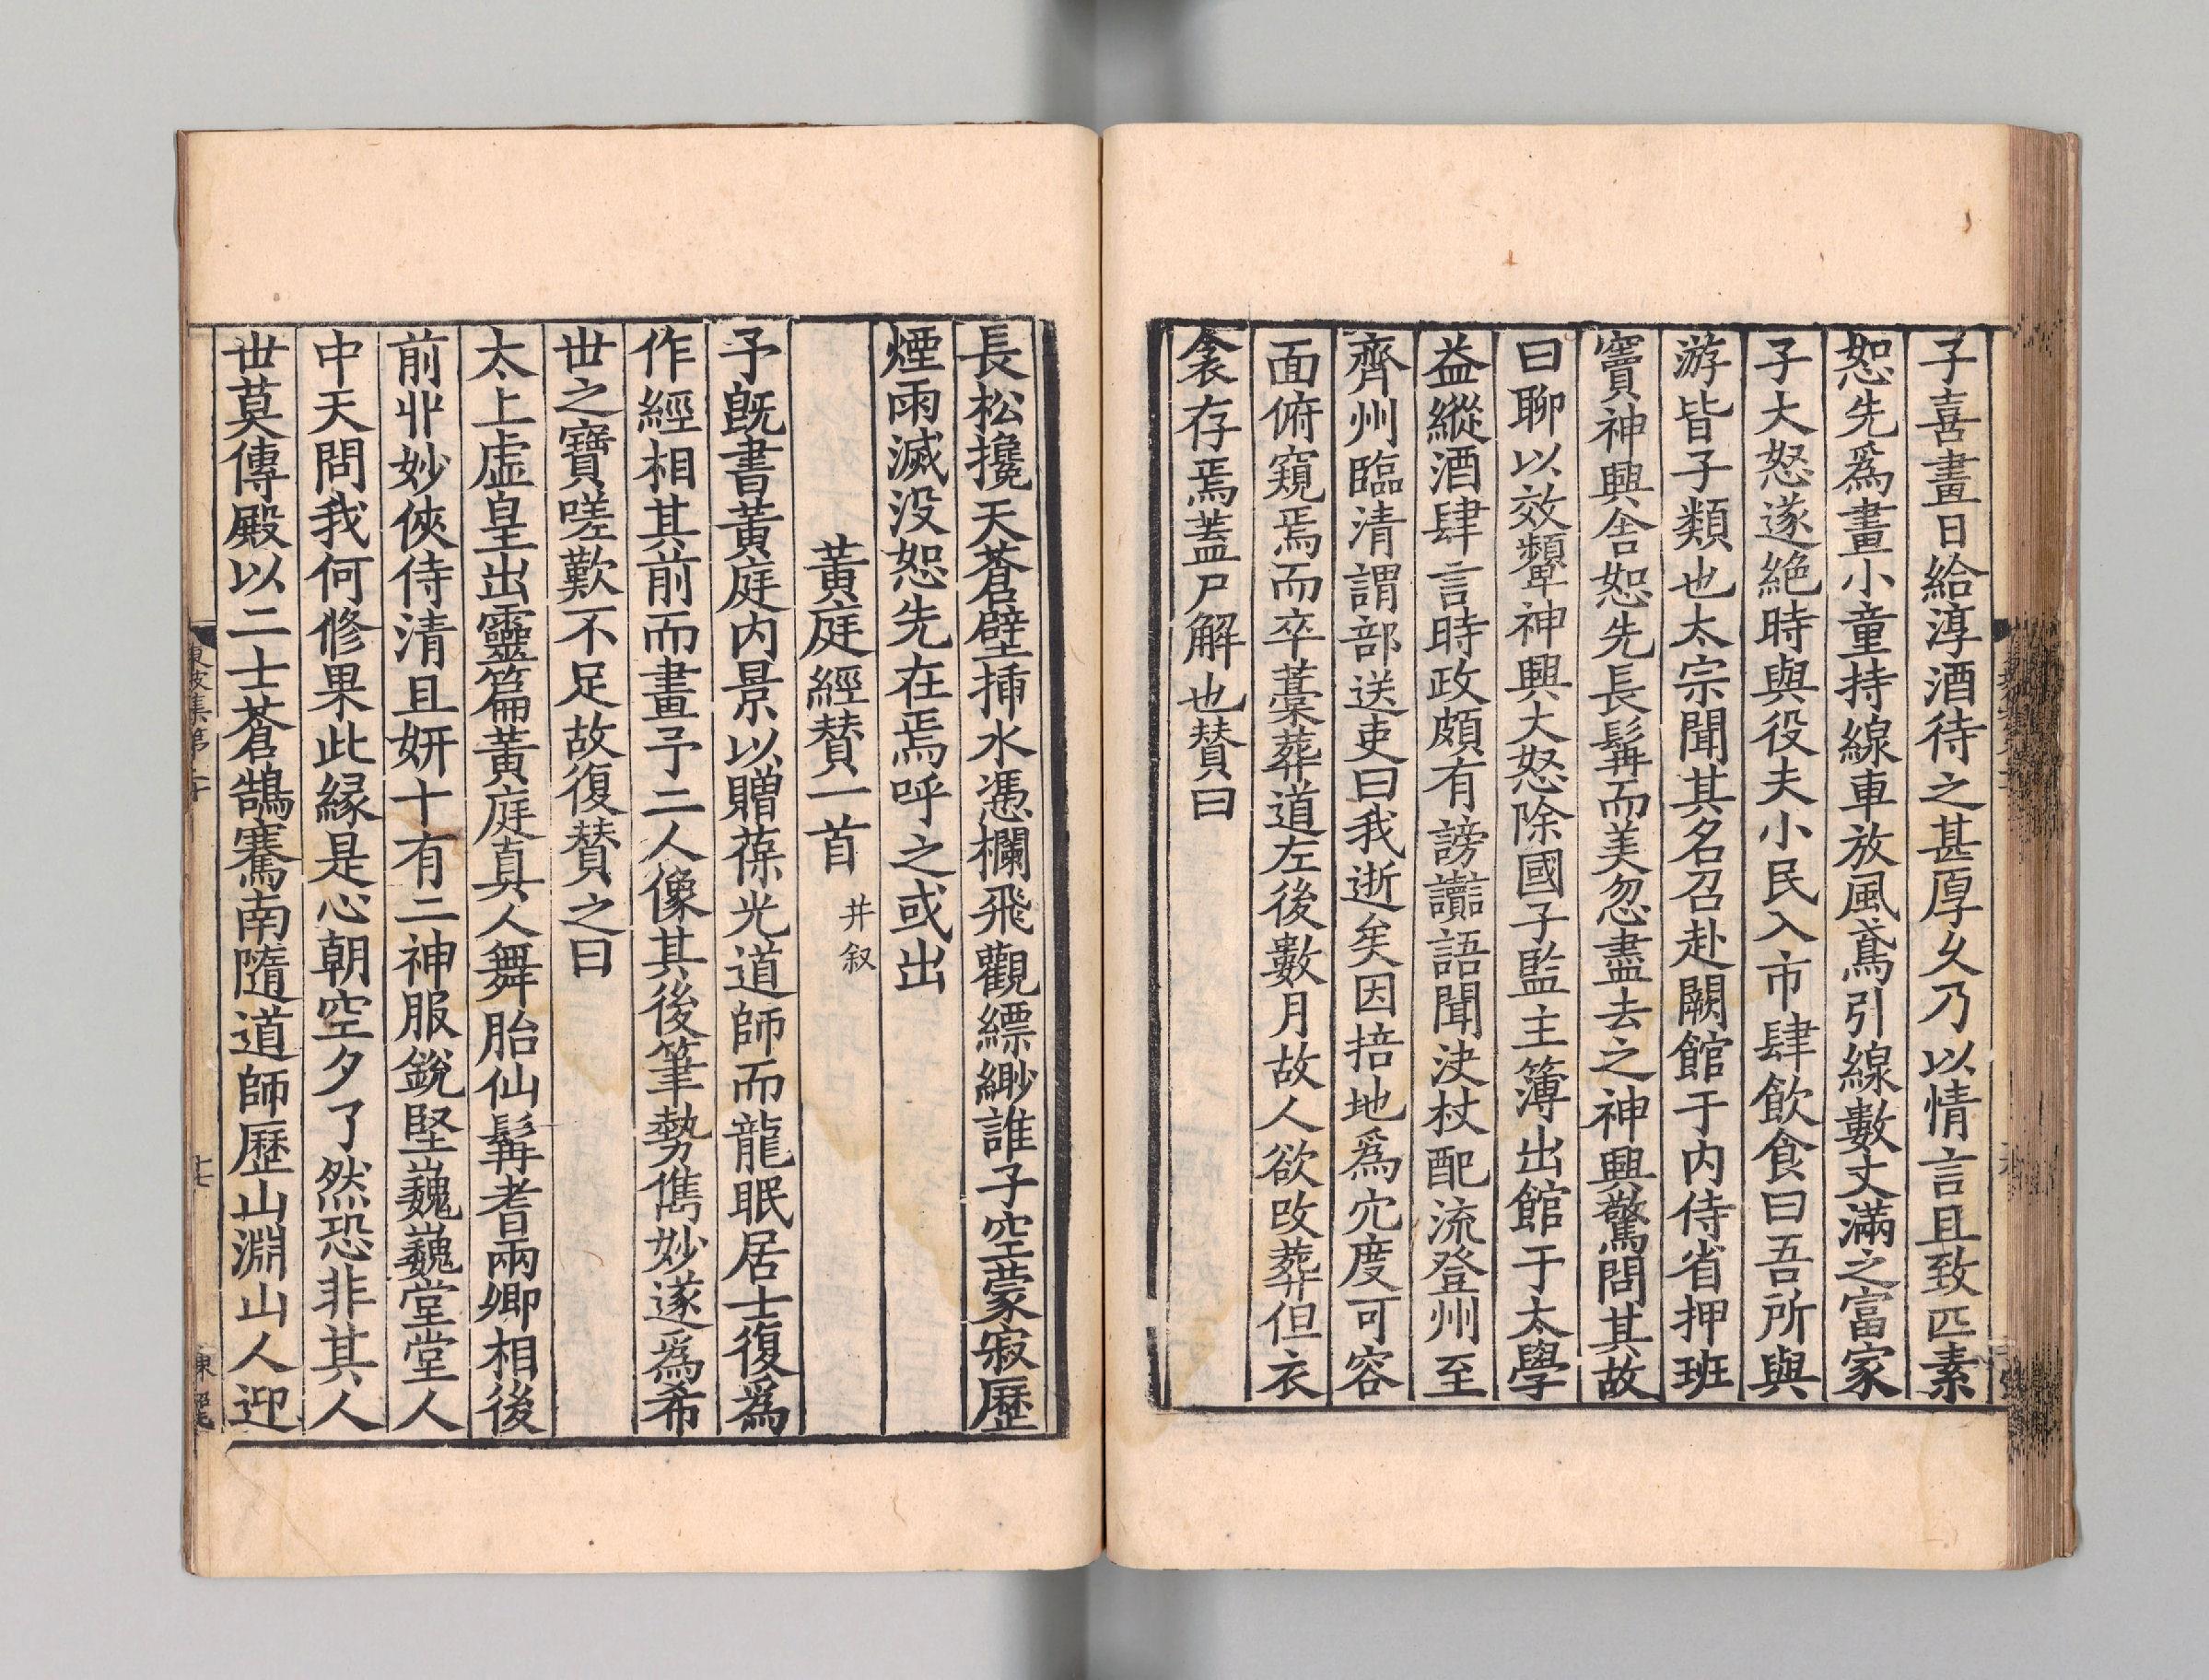 子喜畫日給淳酒待之甚厚久乃以情言且致匹素
恕先爲畫小童持線車放風鳶引線數丈滿之富家
子大怒遂絶時與役夫小民入市肆飲食曰吾所與
游皆子類也太宗聞其名召赴闕館于内侍省押班
竇神興舍恕先長髯而美忽盡去之神興驚問其故
曰聊以效顰神興大怒除國子監主簿出館于太學
益縱酒肆言時政頗有謗讟語聞決杖配流登州至
齊州臨清謂部送吏曰我逝矣因掊地爲穴度可容
面俯窺焉而卒藁葬道左後數月故人欲改葬但衣
衾存焉蓋尸解也贊曰
長松攙天蒼壁插水憑欄飛觀縹緲誰子空蒙寂歷
煙雨滅没恕先在焉呼之或出
黄庭經贊一首 并叙
予既書黄庭内景以贈葆光道師而龍眠居士復爲
作經相其前而畫予二人像其後筆勢雋妙遂爲希
世之寶嗟歎不足故復贊之曰
太上虚皇出靈篇黄庭真人舞胎仙髯耆兩卿相後
前丱妙俠侍清且妍十有二神服鋭堅巍巍堂堂人
中天問我何修果此縁是心朝空夕了然恐非其人
世莫傳殿以二士蒼鵠騫南隨道師歷山淵山人迎
東坡集第二十
十七